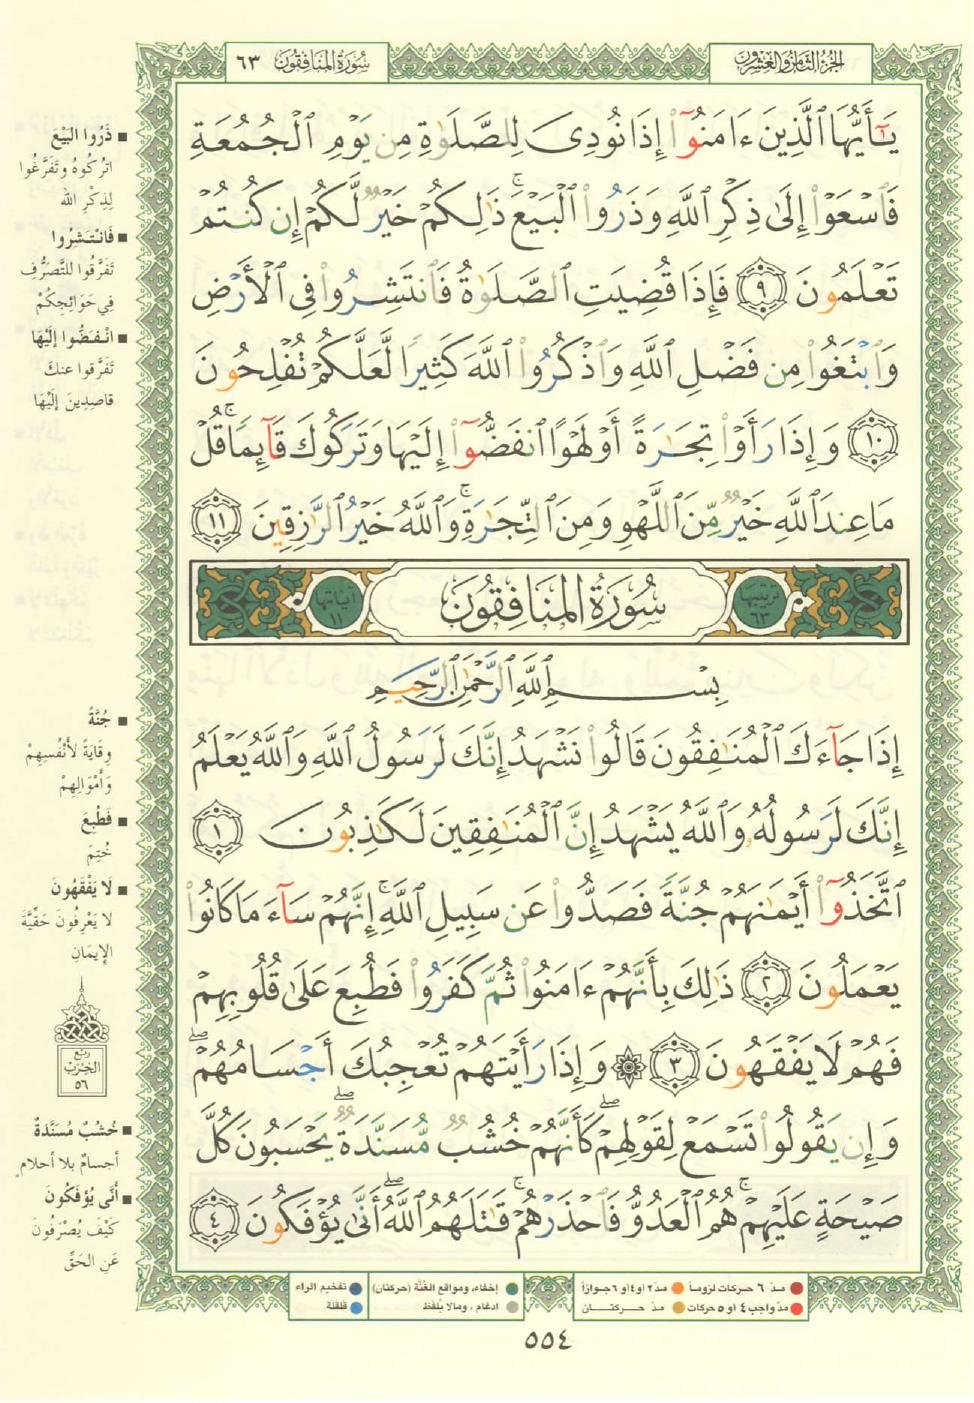 سُورَةُ المُنَافِقُونَ ٦٣
الجُزْءُ الثَّامِنُ وَالعِشْرُونَ
يَٰٓأَيُّهَا ٱلَّذِينَ ءَامَنُوٓا۟ إِذَا نُودِىَ لِلصَّلَوٰةِ مِن يَوْمِ ٱلْجُمُعَةِ
فَٱسْعَوْا۟ إِلَىٰ ذِكْرِ ٱللَّهِ وَذَرُوا۟ ٱلْبَيْعَ ۚ ذَٰلِكُمْ خَيْرٌ لَّكُمْ إِن كُنتُمْ
تَعْلَمُونَ ٩ فَإِذَا قُضِيَتِ ٱلصَّلَوٰةُ فَٱنتَشِرُوا۟ فِى ٱلْأَرْضِ
وَٱبْتَغُوا۟ مِن فَضْلِ ٱللَّهِ وَٱذْكُرُوا۟ ٱللَّهَ كَثِيرًا لَّعَلَّكُمْ تُفْلِحُونَ
١٠ وَإِذَا رَأَوْا۟ تِجَٰرَةً أَوْ لَهْوًا ٱنفَضُّوٓا۟ إِلَيْهَا وَتَرَكُوكَ قَآئِمًا ۚ قُلْ
مَا عِندَ ٱللَّهِ خَيْرٌ مِّنَ ٱللَّهْوِ وَمِنَ ٱلتِّجَٰرَةِ ۚ وَٱللَّهُ خَيْرُ ٱلرَّٰزِقِينَ ١١
ترتيبها ٦٣
سُورَةُ المُنَافِقُونَ
آياتها ١١
بِسْمِ ٱللَّهِ ٱلرَّحْمَٰنِ ٱلرَّحِيمِ
إِذَا جَآءَكَ ٱلْمُنَٰفِقُونَ قَالُوا۟ نَشْهَدُ إِنَّكَ لَرَسُولُ ٱللَّهِ وَٱللَّهُ يَعْلَمُ
إِنَّكَ لَرَسُولُهُۥ وَٱللَّهُ يَشْهَدُ إِنَّ ٱلْمُنَٰفِقِينَ لَكَٰذِبُونَ ١
ٱتَّخَذُوٓا۟ أَيْمَٰنَهُمْ جُنَّةً فَصَدُّوا۟ عَن سَبِيلِ ٱللَّهِ ۚ إِنَّهُمْ سَآءَ مَا كَانُوا۟
يَعْمَلُونَ ٢ ذَٰلِكَ بِأَنَّهُمْ ءَامَنُوا۟ ثُمَّ كَفَرُوا۟ فَطُبِعَ عَلَىٰ قُلُوبِهِمْ
فَهُمْ لَا يَفْقَهُونَ ٣ ۞ وَإِذَا رَأَيْتَهُمْ تُعْجِبُكَ أَجْسَامُهُمْ ۖ
وَإِن يَقُولُوا۟ تَسْمَعْ لِقَوْلِهِمْ ۖ كَأَنَّهُمْ خُشُبٌ مُّسَنَّدَةٌ ۖ يَحْسَبُونَ كُلَّ
صَيْحَةٍ عَلَيْهِمْ ۚ هُمُ ٱلْعَدُوُّ فَٱحْذَرْهُمْ ۚ قَٰتَلَهُمُ ٱللَّهُ ۖ أَنَّىٰ يُؤْفَكُونَ ٤
■ ذَرُوا البَيْعَ
اتْرُكُوهُ وتَفَرَّغُوا
لِذِكْرِ الله
■ فَانْتَشِرُوا
تَفَرَّقُوا لِلتَّصَرُّفِ
فِي حَوَائِجِكُمْ
■ انْفَضُّوا إلَيْهَا
تَفَرَّقوا عنكَ
قاصِدِينَ إلَيْهَا
■ جُنَّةً
وِقَايَةً لأنْفُسِهِمْ
وَأمْوَالِهِمْ
■ فَطُبِعَ
خُتِمَ
■ لَا يَفْقَهُونَ
لا يَعْرِفُونَ حَقِّيَّةَ
الإيمَانِ
ربع
الحزب
٥٦
■ خُشُبٌ مُسَنَّدَةٌ
أجسامٌ بلا أحلامٍ
■ أنَّى يُؤْفَكُونَ
كَيْفَ يُصْرَفُونَ
عَنِ الحَقِّ
مدّ ٦ حركات لزوماً مدّ ٢ او ٤ او ٦ جوازاً
مدّ واجب ٤ او ٥ حركات مدّ حركتان
إخفاء، ومواقع الغُنَّة (حركتان)
ادغام، ومالا يُلفَظ
تفخيم الراء
قلقلة
٥٥٤